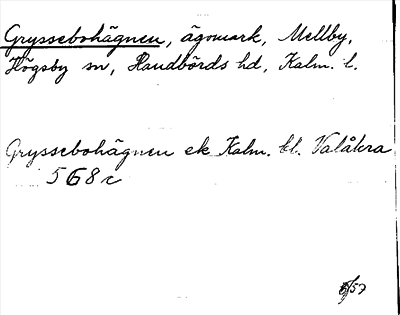 Gryssebohägnen, ägomark, Mellby,
Högsby sn, Handbörds hd, Kalm. l.
Gryssebohägnen ek Kalm. bl. Valåkra
568c
/57